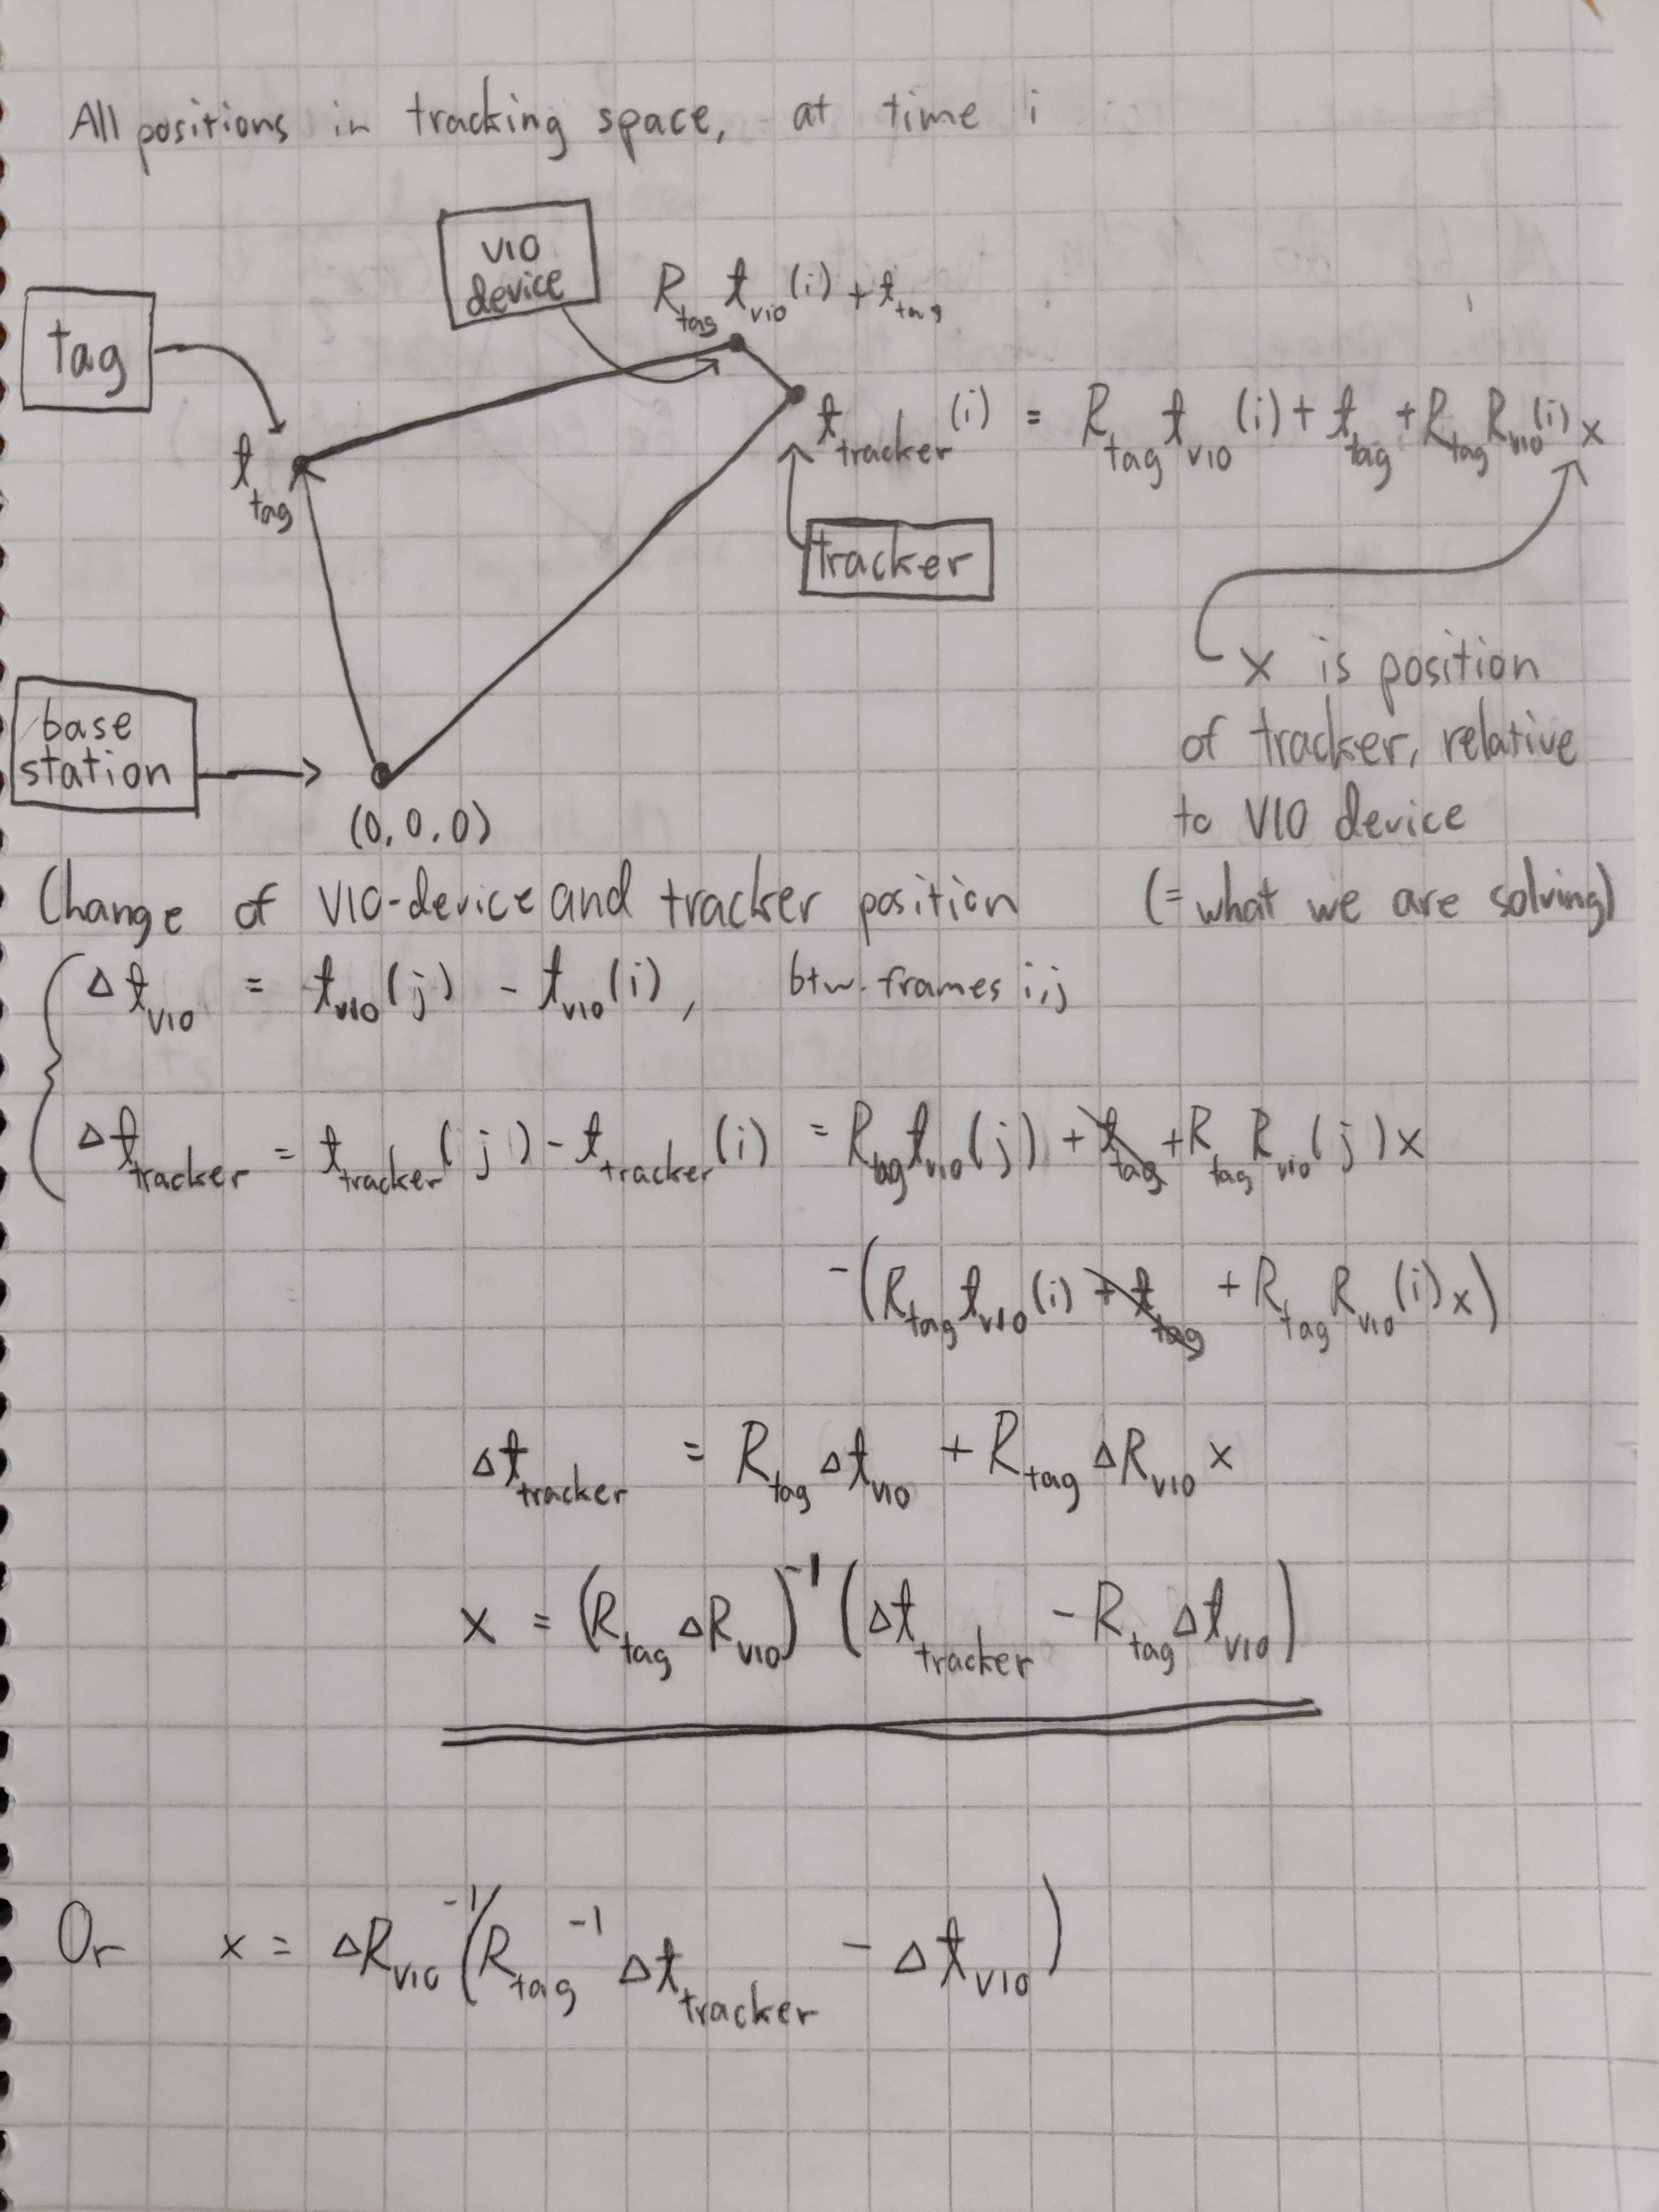 All positions in tracking space, at time i
VIO
device
R_tag t_vio (i) + t_tag
tag
t_tracker (i) = R_tag t_vio (i) + t_tag + R_tag R_vio (i) x
t_tag
tracker
base
station
(0, 0, 0)
x is position
of tracker, relative
to VIO device
(= what we are solving)
Change of VIO-device and tracker position
Δt_vio = t_vio (j) - t_vio (i), btw. frames i,j
Δt_tracker = t_tracker (j) - t_tracker (i) = R_tag t_vio (j) + t_tag + R_tag R_vio (j) x
- (R_tag t_vio (i) + t_tag + R_tag R_vio (i) x)
Δt_tracker = R_tag Δt_vio + R_tag ΔR_vio x
x = (R_tag ΔR_vio)^-1 (Δt_tracker - R_tag Δt_vio)
Or x = ΔR_vio^-1 (R_tag^-1 Δt_tracker - Δt_vio)